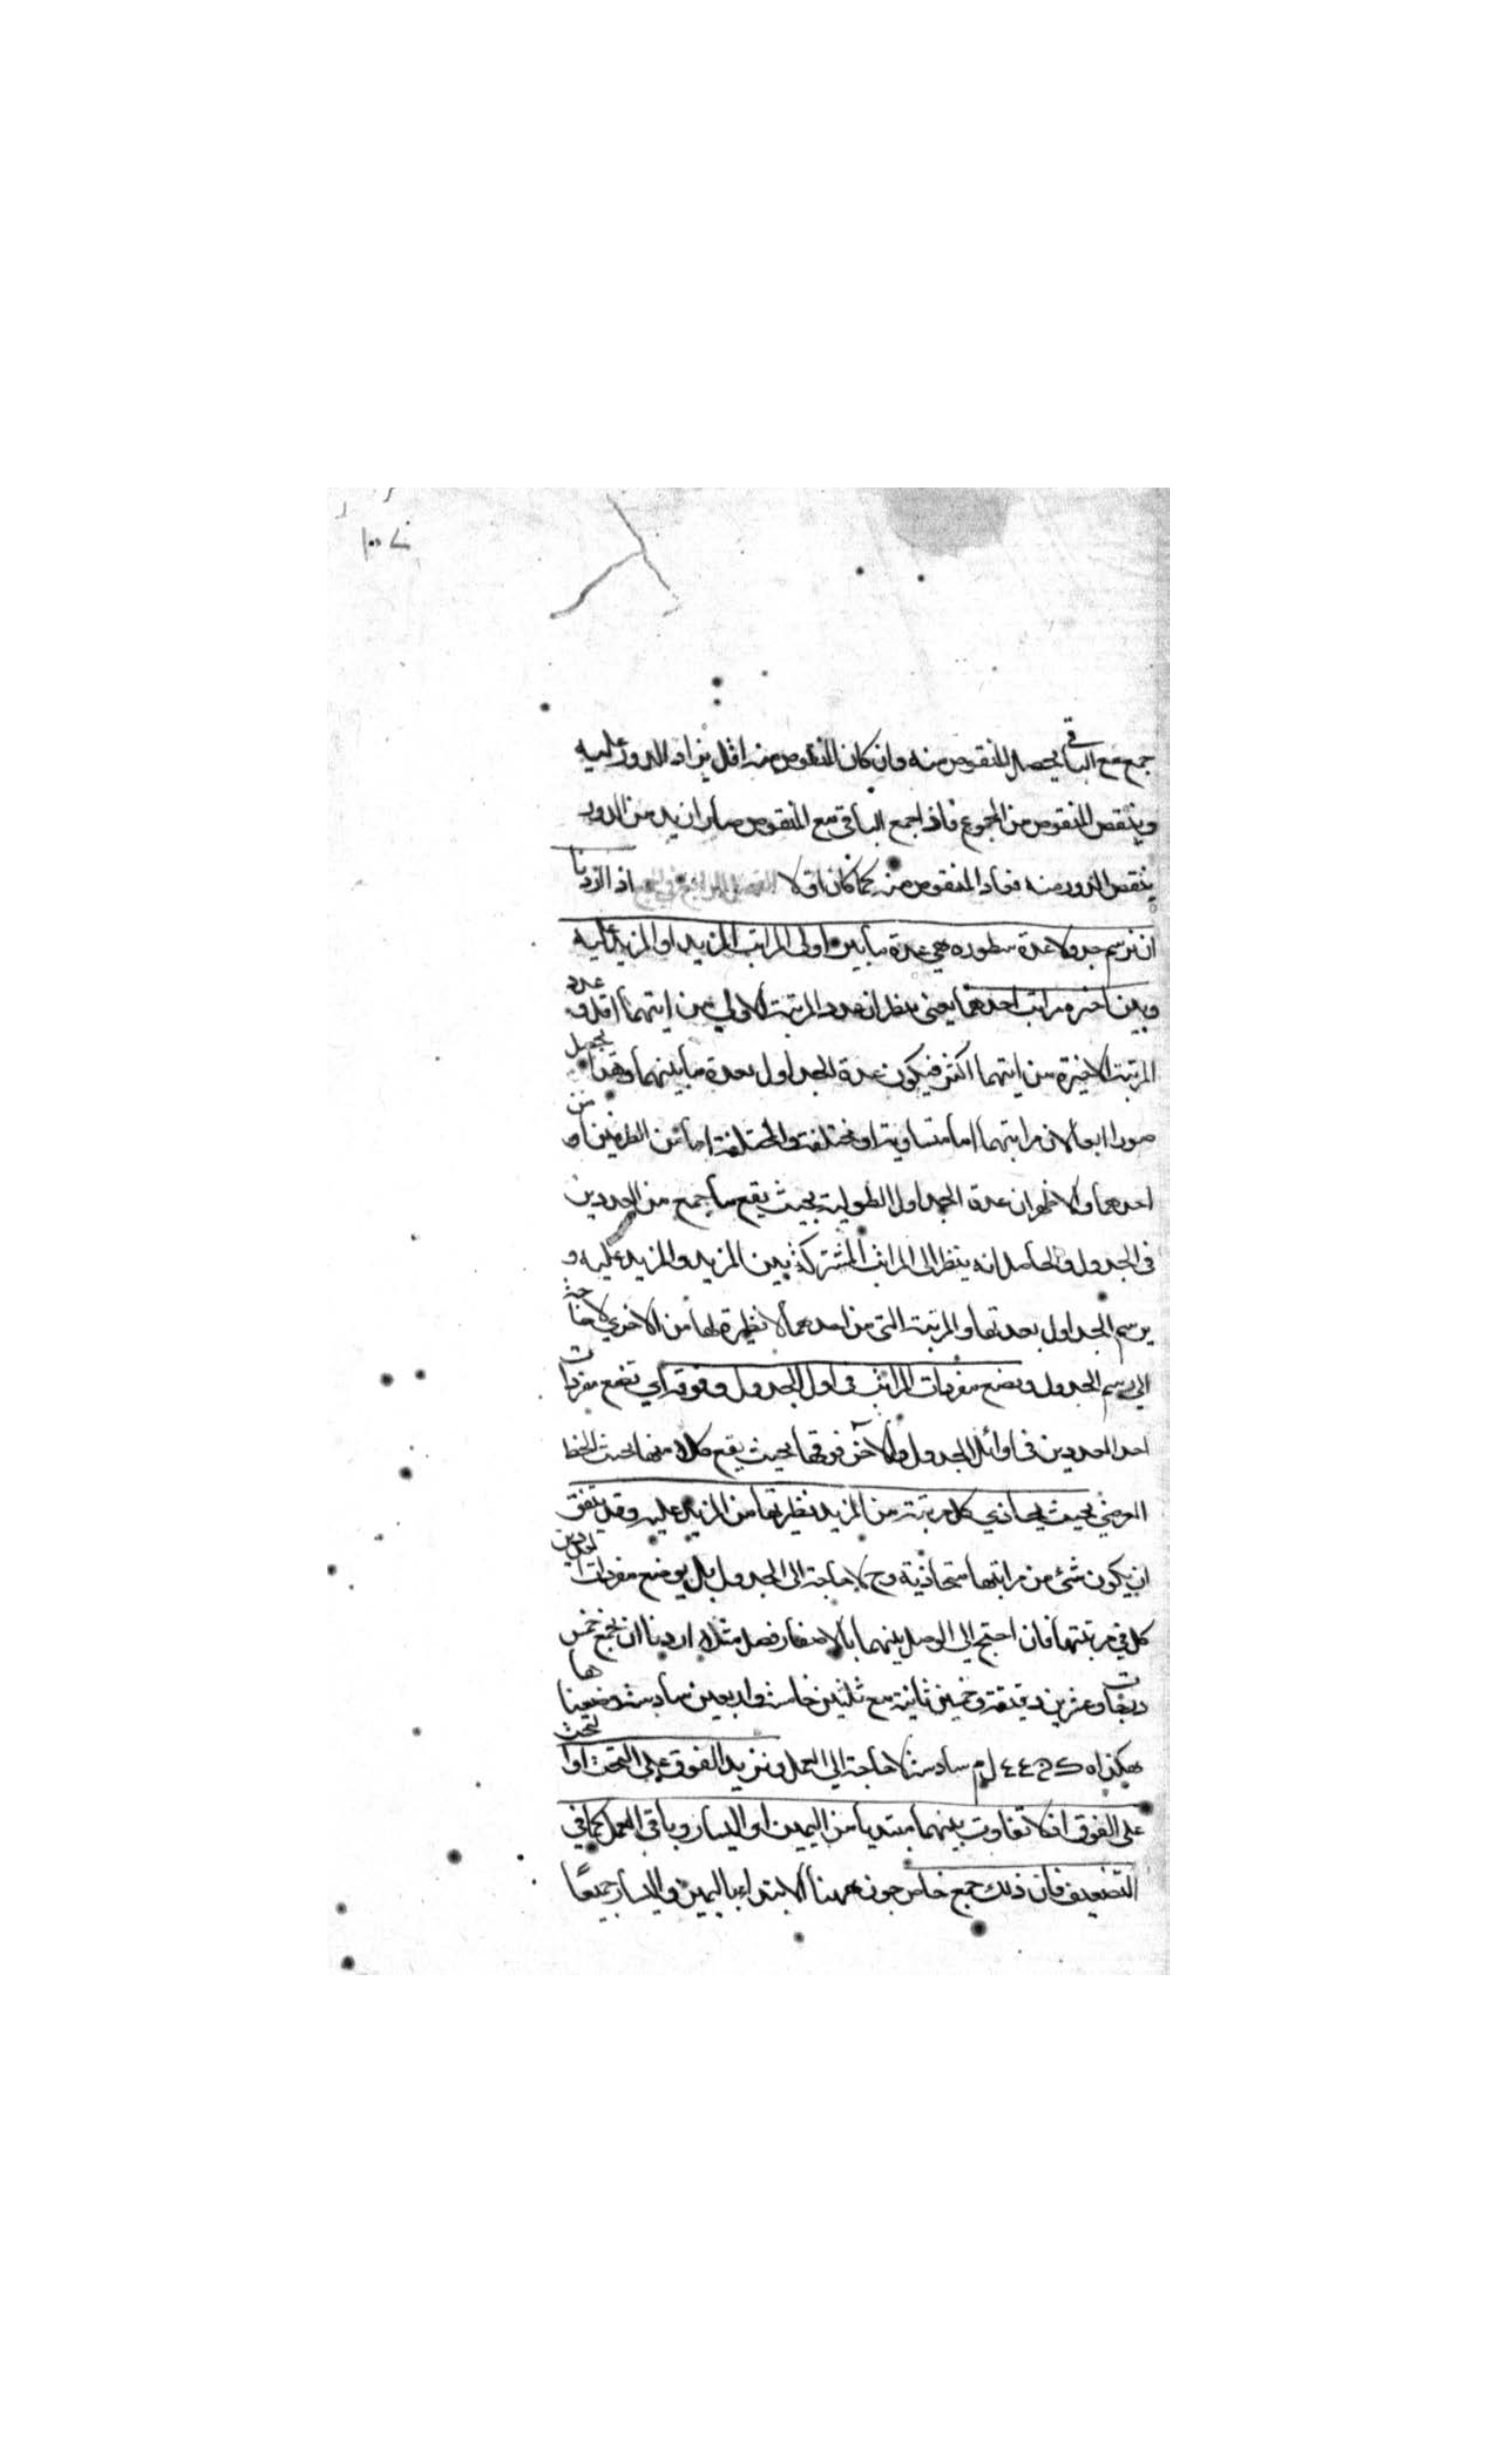 ١٠٠٧
جمع مع الباقي يحصل المنقوص منه وان كان المنقوص منه اقل يزاد الدور عليه
وينقص المنقوص من المجموع فاذا جمع الباقي مع المنقوص صار ازيد من الدور
ينقص الدور منه فعاد المنقوص منه كما كان اولا الفصل الرابع في الجمع اذا اردنا
ان نرسم جدولا عدة سطوره هي عدة ما بين اولى المراتب المزيد او المزيد عليه
وبين اخيرة مراتب احدهما يعني ينظر ان عدد المرتبة الاولى من ايتهما اقل و عدد
المرتبة الاخيرة من ايتهما اكثر فيكون عدة الجداول بعدة ما بينهما وهذا يحصل
صورا اربعا لان مراتبهما اما متساوية او مختلفة والمختلفة اما من الطرفين او من
احدهما والاظهر ان عدة الجداول الطولية بحيث يقع ما جمع من العددين
في الجدول والحاصل انه ينظر الى المراتب المشتركة بين المزيد والمزيد عليه و
يرسم الجداول بعدتها والمرتبة التي من احدهما لا نظيرة لها من الاخرى لا حاجة
الى رسم الجدول ونضع مفردات المراتب في اول الجدول وفوقه اي نضع مفردات
احد العددين في اوائل الجدول والاخر فوقها بحيث يقع كلا منها بحيث الخط
العرضي بحيث يحاذي كل مرتبة من المزيد نظيرتها من المزيد عليه وقد يتفق
ان يكون شئ من مراتبها متحاذية وح لا حاجة الى الجدول بل يوضع مفردات العددين
كل في مرتبتها فان احتيج الى الوصل بينهما بالاصفار فصل مثلا اردنا ان نجمع خمس
درجات وعشرين دقيقة وخمسين ثانية مع ثلثين خامسة واربعين سادسة وضعناها
هكذا سادسة لا حاجة الى العمل ونزيد الفوق على التحت او التحت
على الفوق اذ لا تفاوت بينهما مبتديا من اليمين او اليسار وباقي العمل كما في
التضعيف فان ذلك جمع خاص ههنا الابتداء باليمين واليسار جميعا